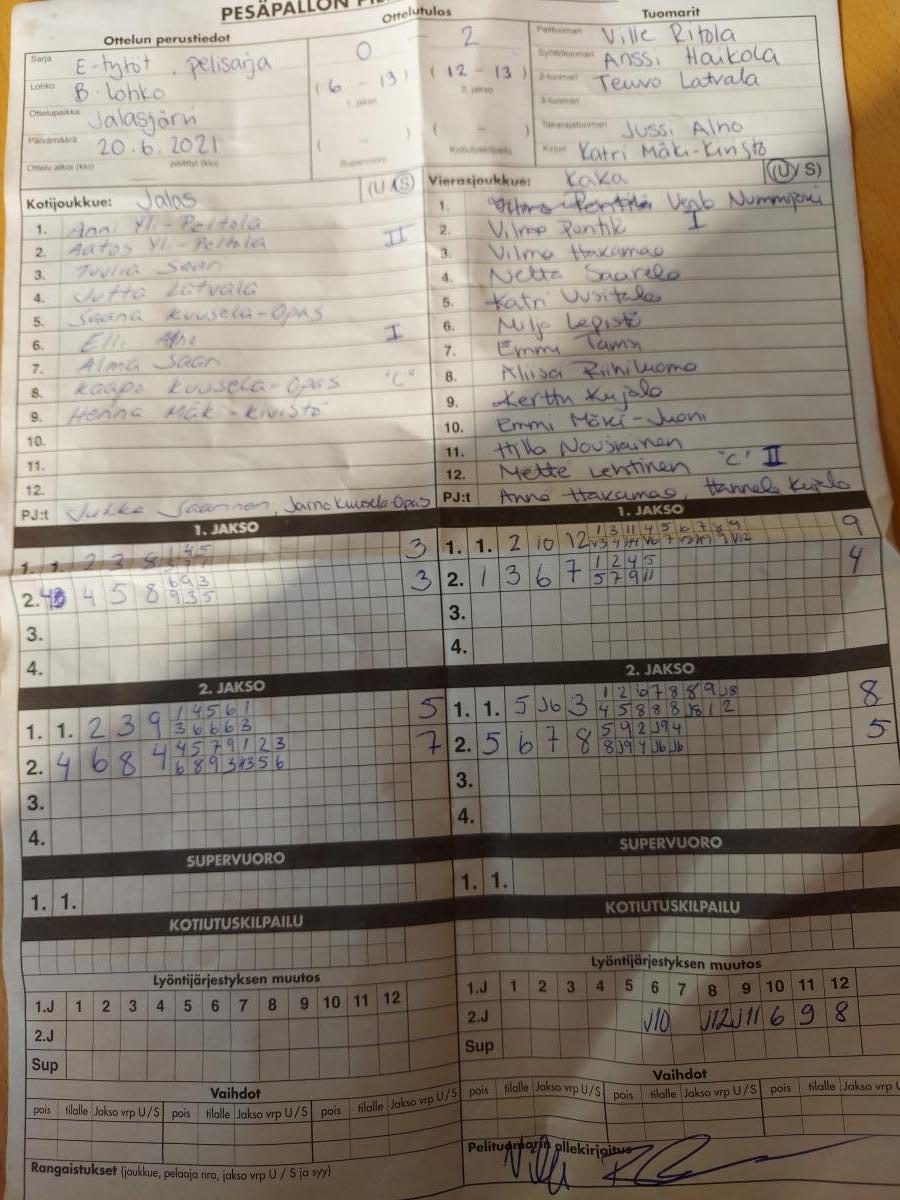 PESÄPALLON
Ottelutulos
Tuomarit
Ottelun perustiedot
0 2
Pelituomari Ville Ritola
Sarja E-tytöt, pelisarja
Syöttötuomari Anssi Haikola
Lohko B-lohko
(6 - 13) (12 - 13)
1. jakso 2. jakso
2-tuomari Teuvo Latvala
3-tuomari
Ottelupaikka Jalasjärvi
Takarajatuomari Jussi Alho
Päivämäärä 20.6.2021
( - ) ( - )
Supervuoro Kotiutuskilpailu
Kirjuri Katri Mäki-Kivistö
Ottelu alkoi (klo) päättyi (klo)
Kotijoukkue: Jalas (U/S)
Vierasjoukkue: KaKa (U/S)
1. Anni Yli-Peltola
2. Aatos Yli-Peltola II
3. Tuulia Saari
4. Jutta Latvala
5. Saana Kuusela-Opas
6. Elli Alho I
7. Alma Saari
8. Kaapo Kuusela-Opas "C"
9. Henna Mäki-Kivistö
10.
11.
12.
PJ:t Jukka Saarinen, Jarno Kuusela-Opas
1.
2. Vilma Penttilä I
3. Vilma Hakamaa
4. Netta Saarela
5. Katri Uusitalo
6. Milja Lepistö
7. Emmi Tamsi
8. Aliisa Riihiluoma
9. Kerttu Kujala
10. Emmi Mäki-Juoni
11. Hilla Nousiainen
12. Mette Lehtinen "C" II
PJ:t Anna Hakamaa, Hannele Kujala
1. JAKSO
1. 1. 2 3 8 3
2. 4 5 8 3
3.
4.
1. JAKSO
1. 1. 2 10 12 9
2. 1 3 6 7 1 2 4 5 4
5 7 9 11
3.
4.
2. JAKSO
1. 1. 2 3 9 1 4 5 6 1 5
3 6 6 6 3
2. 4 6 8 4 4 5 7 9 1 2 3 7
3.
4.
2. JAKSO
1. 1. 5 J6 3 1 2 6 7 8 8 9 J8 8
2. 5 6 7 8 5 9 2 J9 4 5
8 J9 4 J6 J6
3.
4.
SUPERVUORO
1. 1.
SUPERVUORO
1. 1.
KOTIUTUSKILPAILU
KOTIUTUSKILPAILU
Lyöntijärjestyksen muutos
1.J 1 2 3 4 5 6 7 8 9 10 11 12
2.J
Sup
Lyöntijärjestyksen muutos
1.J 1 2 3 4 5 6 7 8 9 10 11 12
2.J J10 J12 J11 6 9 8
Sup
Vaihdot
pois tilalle Jakso vrp U/S pois tilalle Jakso vrp U/S pois tilalle Jakso vrp U/S
Vaihdot
pois tilalle Jakso vrp U/S pois tilalle Jakso vrp U/S pois tilalle Jakso vrp U
Rangaistukset (joukkue, pelaaja nro, jakso vrp U / S ja syy)
Pelituomarin allekirjoitus